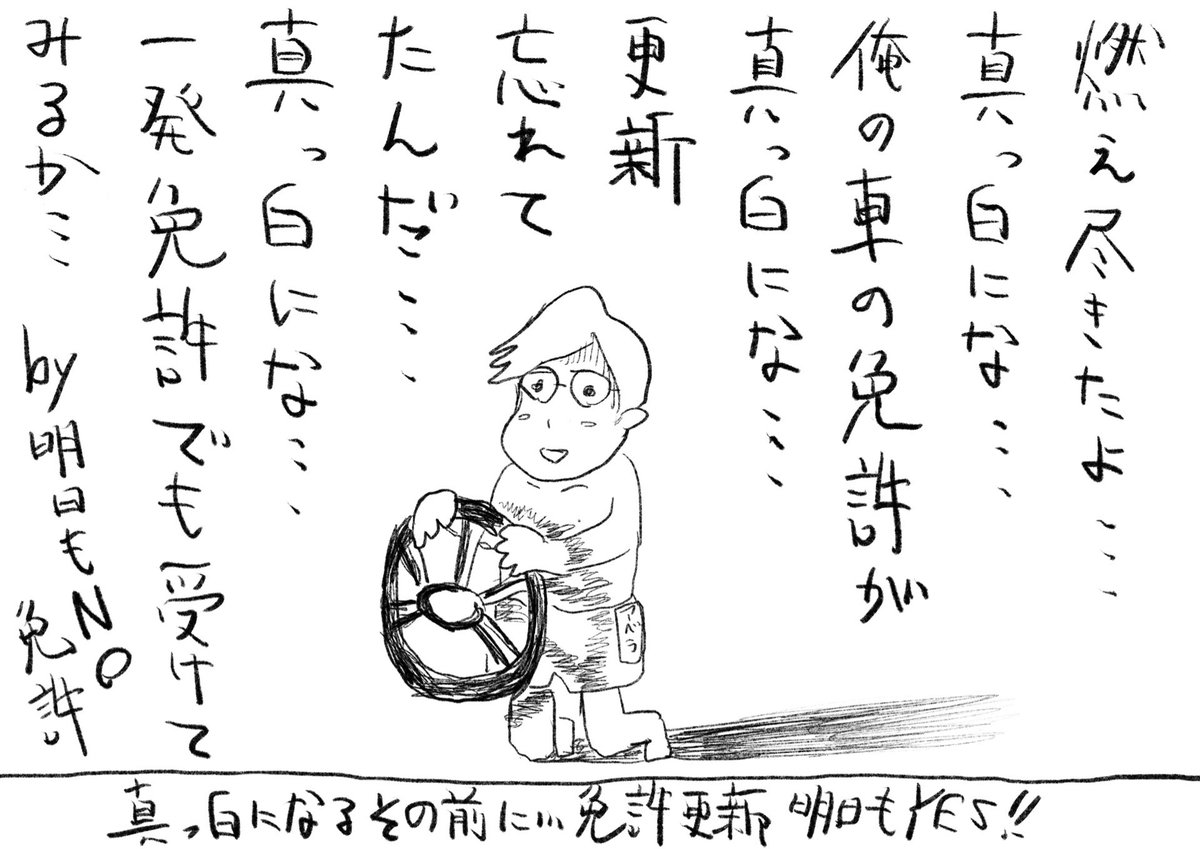 燃え尽きたよ・・・
真っ白にな・・・
俺の車の免許が
真っ白にな・・・
更新
忘れて
たんだ・・・
真っ白にな・・・
一発免許でも受けて
みるか・・・ by 明日もNO免許
アベラ
真っ白になるその前に・・・免許更新 明日もYES!!